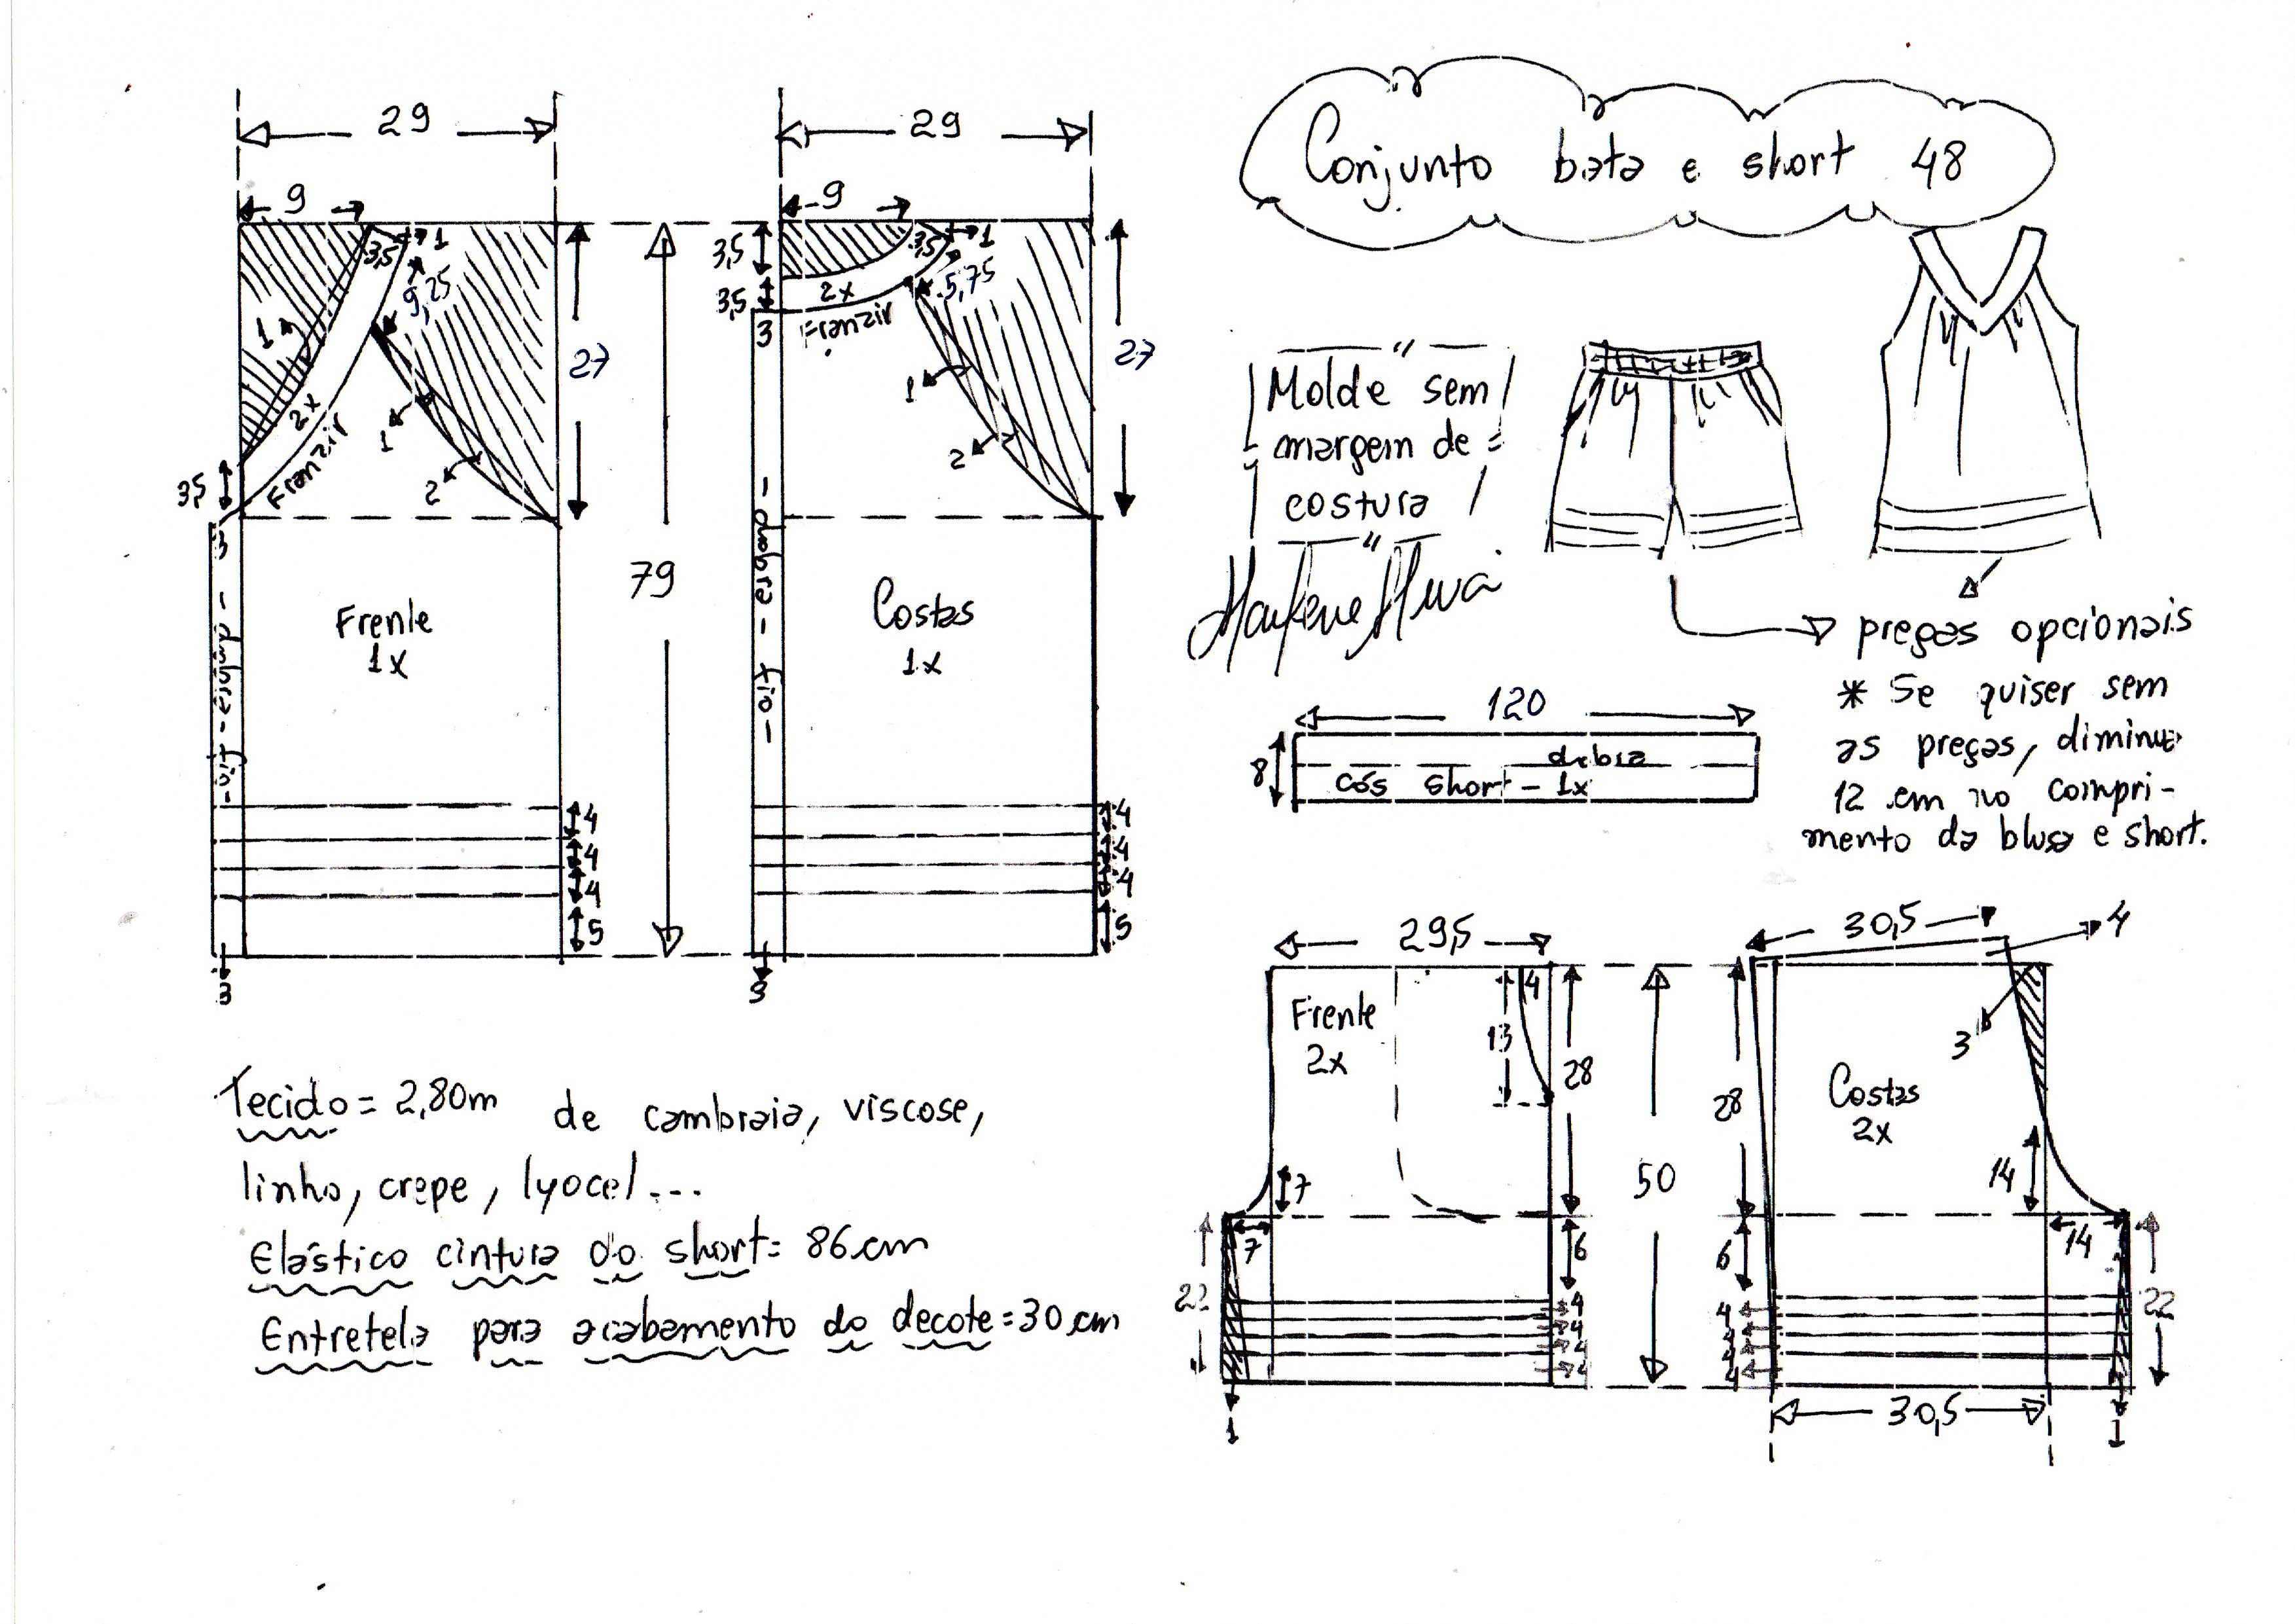 Conjunto bata e short 48
29
9
3,5
1
9,25
1
2x
Franzir
1
2
27
3,5
3
- dobra - fio -
Frente
1x
4
4
4
5
3
79
29
9
3,5
3,5
3,5
1
5,75
2x
3
Franzir
1
2
27
- dobra - fio -
Costas
1x
4
4
4
5
3
"
Molde sem
margem de
costura
"
pregas opcionais
* Se quiser sem
as pregas, diminue
12 cm no compri-
mento da blusa e short.
120
8
dobra
cós short - 1x
Tecido = 2,80m de cambraia, viscose,
linho, crepe, lyocel...
Elástico cintura do short = 86 cm
Entretela para acabamento do decote = 30 cm
29,5
Frente
2x
4
13
28
7
7
6
22
4
4
4
4
1
50
30,5
4
3
28
Costas
2x
14
14
6
4
4
4
4
22
30,5
1